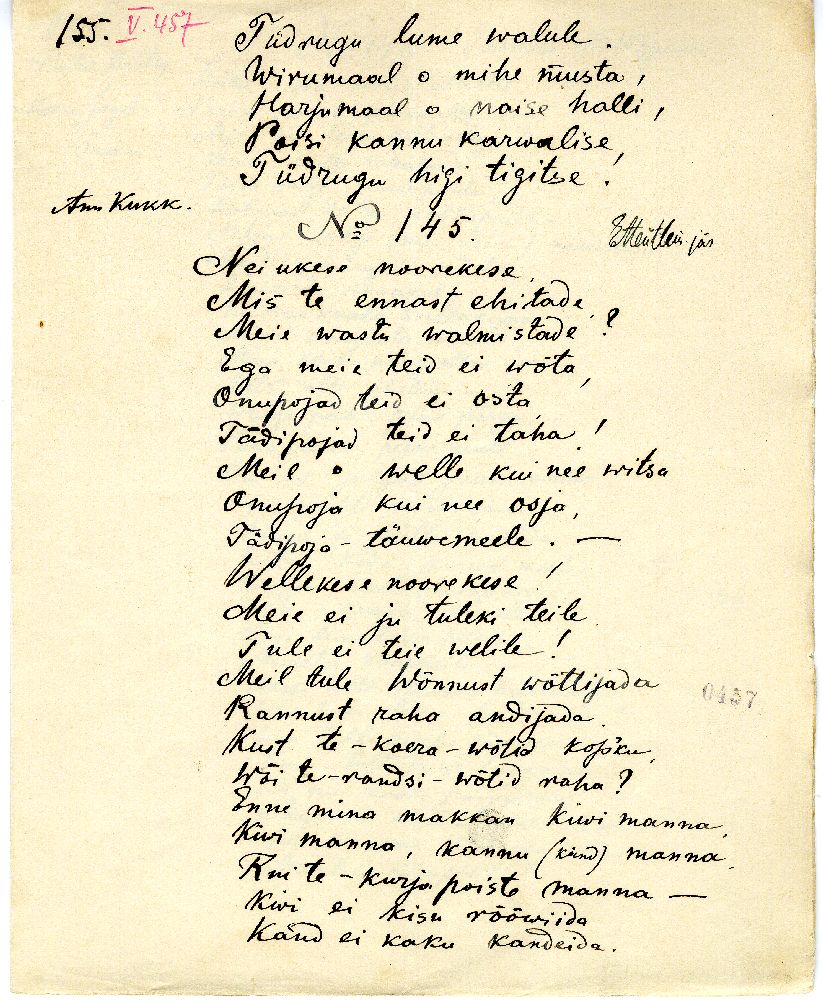 155. V. 457
Tüdrugu lume walule.
Wirumaal o mihe musta,
Harjumaal o naise halli,
Poisi kannu karwalise,
Tüdrugu higi tigitse!
Ann Kukk.
№ 145.
Neiukese noorekese,
Mis te ennast ehitade,
Meie wastu walmistade?
Ega meie teid ei wõta,
Onupojad teid ei osta,
Tädipojad teid ei taha!
Meil o welle kui nee witsa
Onupoja kui nee osja,
Tädipoja - täuwemeele. —
Wellekese noorekese!
Meie ei ju tuleki teile.
Tule ei teie welile!
Meil tule Wõnnust wõttijada
Rannust raha andijada.
Kust te - kaera - wõtid kopku,
Wõi te - randsi - wõtid raha?
Enne mina makkan kiwi manna,
Kiwi manna, kannu (känd) manna.
Kui te - kurja poiste manna —
Kiwi ei kisu rõõwiida
Känd ei kaku kandeida.
0457